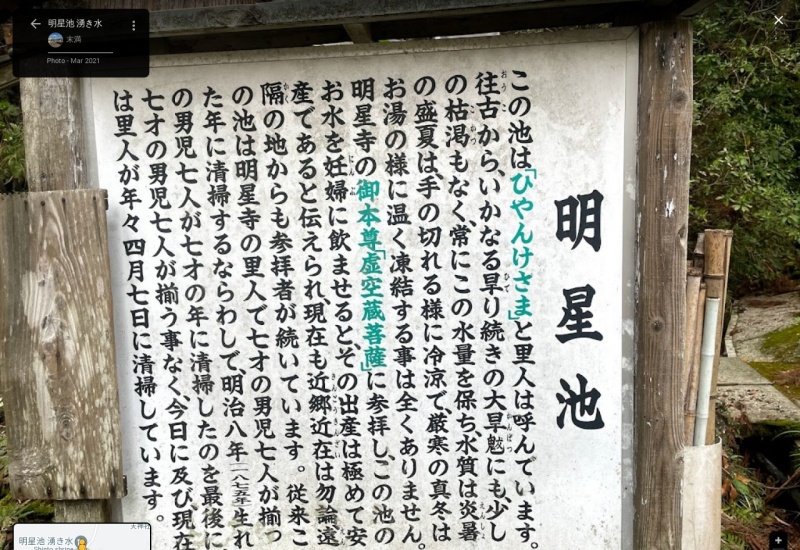 明星池 湧き水
末満
Photo - Mar 2021
明星池
この池は「ひやんけさま」と里人は呼んでいます。
往古から、いかなる旱り続きの大旱魃にも、少し
の枯渇もなく、常にこの水量を保ち、水質は炎暑
の盛夏は、手の切れる様に冷涼で厳寒の真冬は
お湯の様に温く凍結する事は全くありません。
明星寺の御本尊「虚空蔵菩薩」に参拝し、この池の
お水を妊婦に飲ませると、その出産は極めて安
産であると伝えられ、現在も近郷近在は勿論遠
隔の地からも参拝者が続いています。従来こ
の池は明星寺の里人で七才の男児七人が揃っ
た年に清掃するならわしで、明治八年(一八七五年)生れ
の男児七人が七才の年に清掃したのを最後に
七才の男児七人が揃う事なく、今日に及び、現在
は里人が年々四月七日に清掃しています。
明星池 湧き水
天神社